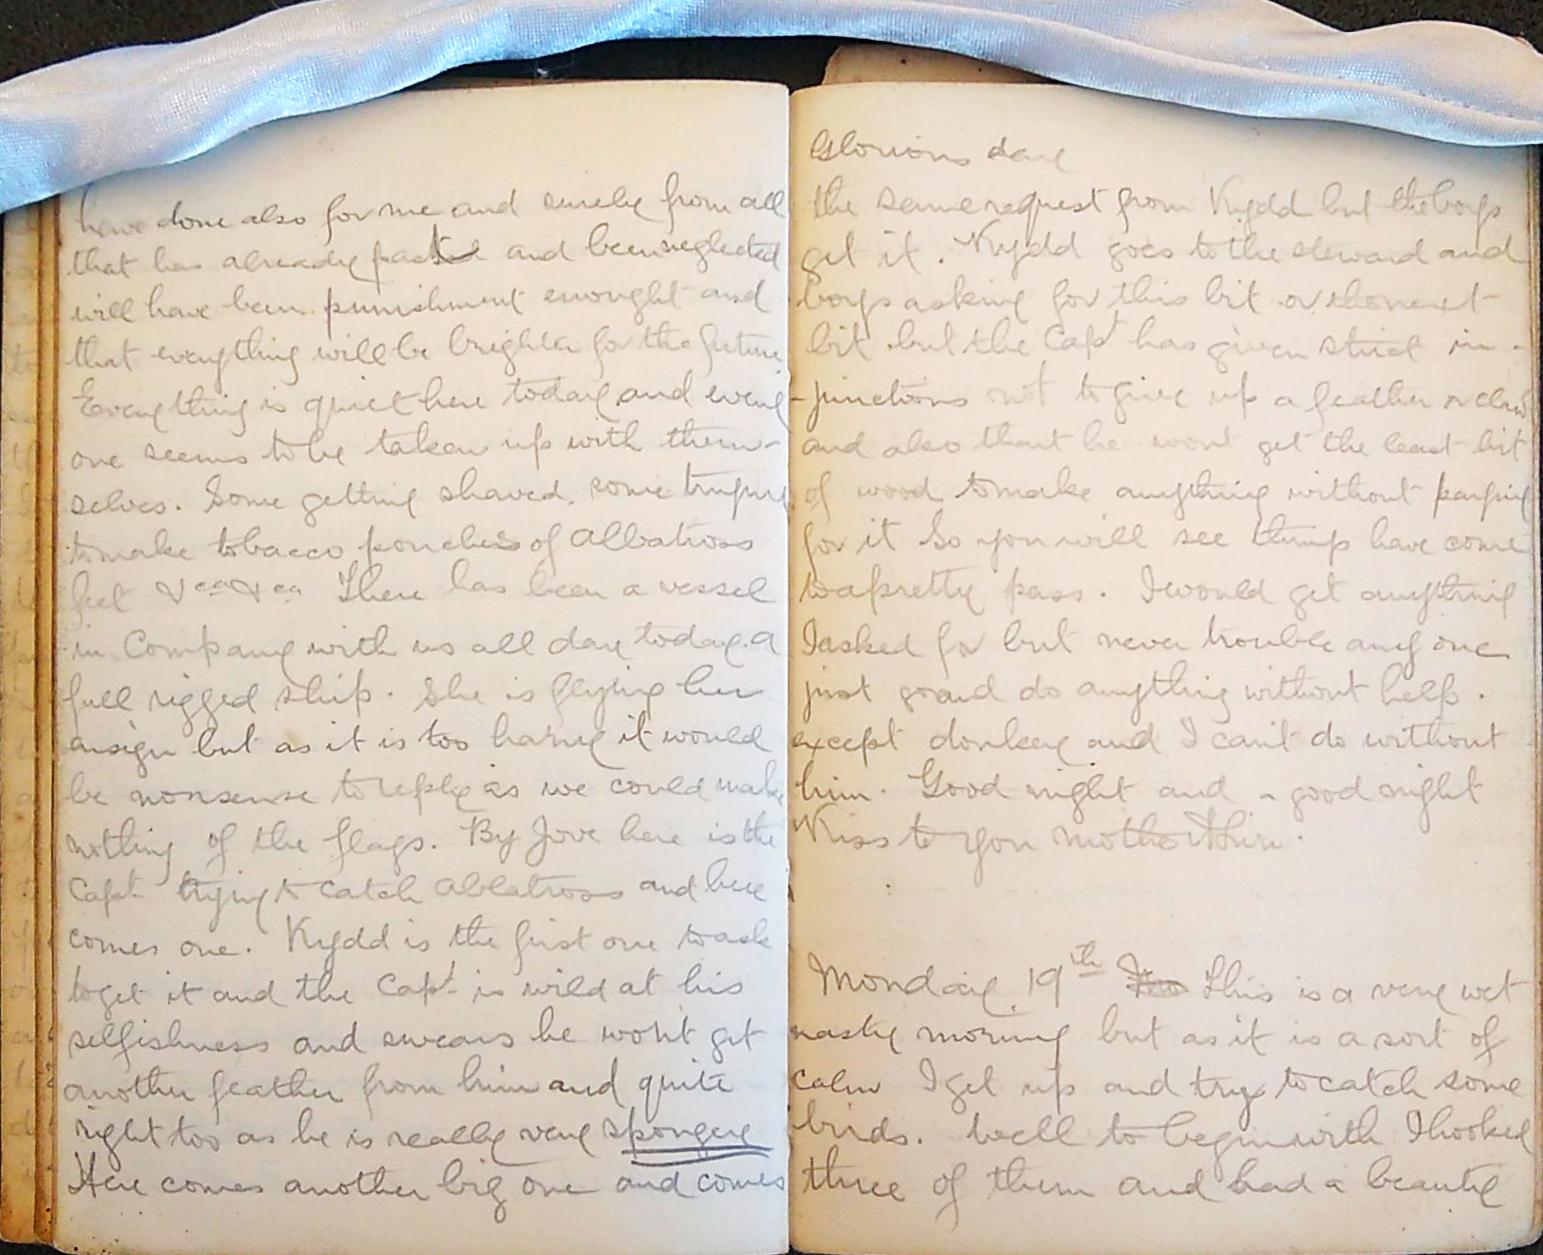 have done also for me and surely from all
that has already past and been neglected
will have been punishment enought and
that everything will be brighter for the future
Everything is quiet here today and every
one seems to be taken up with them-
selves. Some getting shaved, some trying
to make tobacco pouches of Albatross
feet &ca &ca There has been a vessel
in Company with us all day today. A
full rigged ship. She is flying her
ansign but as it is too hazey it would
be nonsense to reply as we could make
nothing of the flags. By Jove here is the
Capt trying to catch Ablatross and here
comes one. Kydd is the first one to ask
to get it and the Capt is wild at his
selfishness and swears he won't get
another feather from him and quite
right too as he is really very spongey
Here comes another big one and comes
Glorious day
the same request from Kydd but the boys
get it. Kydd goes to the steward and
boys asking for this bit or the next
bit but the Capt has given strict in-
-junctions not to give up a feather or claw
and also that he wont get the least bit
of wood to make anything without paying
for it So you will see things have come
to a pretty pass. I would get anything
I asked for but never trouble any one
just go and do anything without help.
except donkey and I can't do without
him. Good night and a good night
Kiss to you
Monday 19th This is a very wet
nasty morning but as it is a sort of
calm I get up and try to catch some
birds. Well to begin with I hooked
three of them and had a beauty